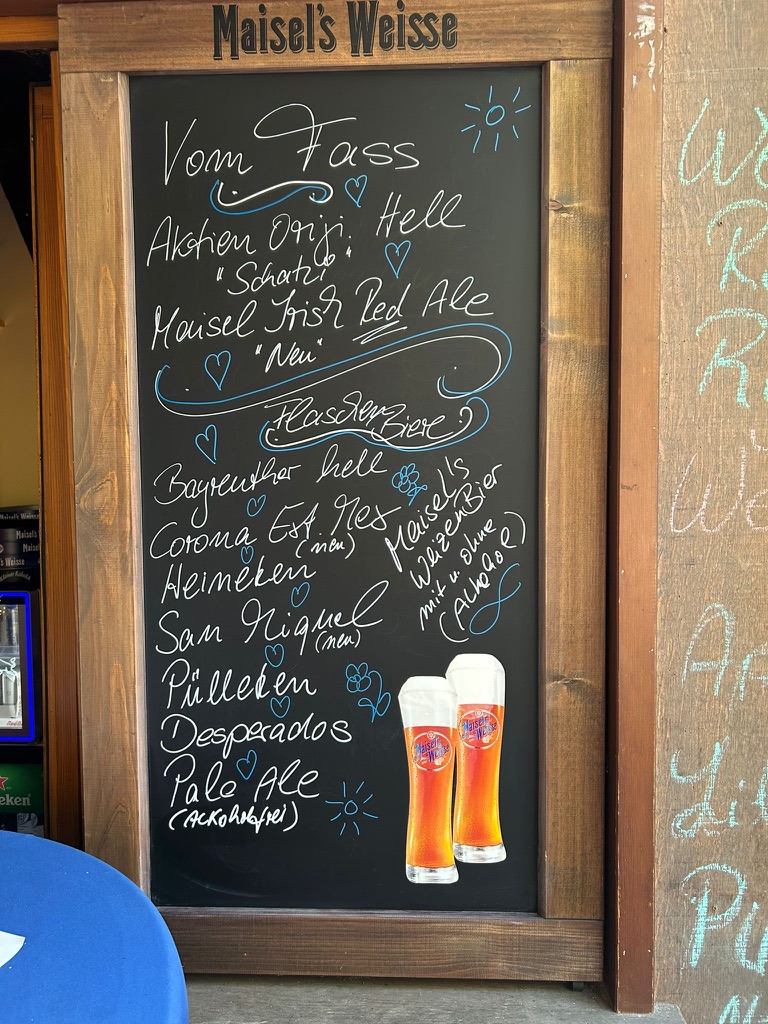 Maisel's Weisse
Vom Fass
Aktien Origi. Hell
"Schatzi"
Maisel Irish Red Ale
"Neu"
Flaschen Biere
Bayreuther hell
Corona Est Mex
(neu)
Heineken
San Miguel
(neu)
Pülleken
Desperados
Pale Ale
(Alkoholfrei)
Maisel's
Weizen Bier
mit u. ohne
(Alkohol)
Maisel's
Weisse
Maisel's
Weisse